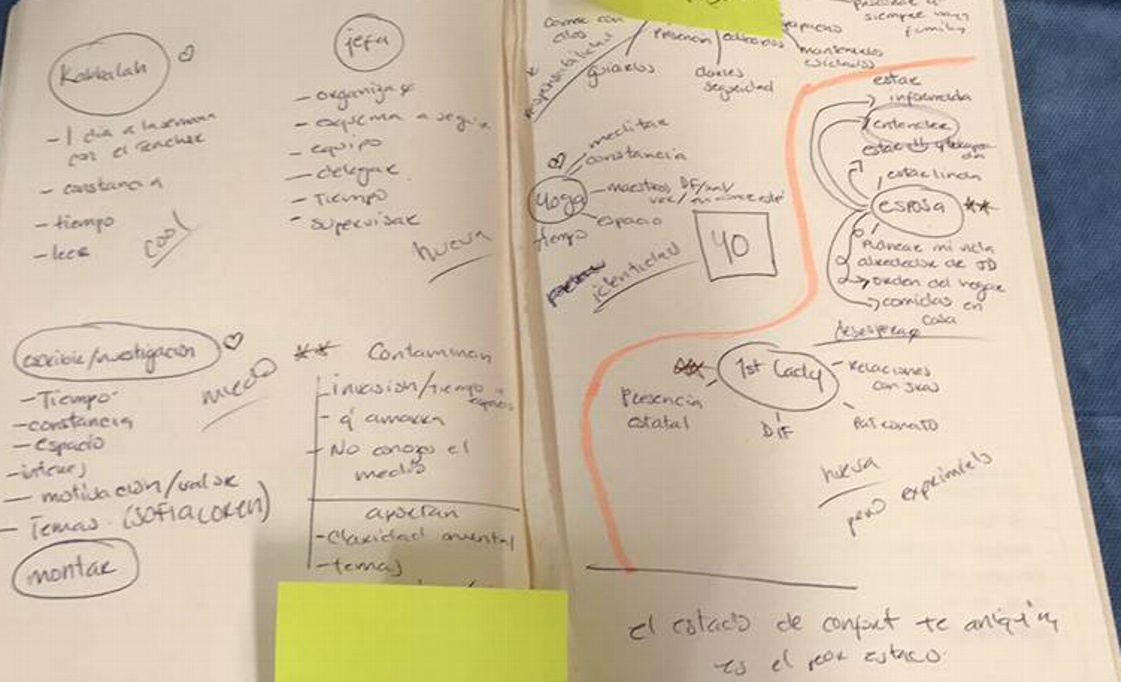 Kabbalah
- 1 dia a la semana
con el teacher
- constancia
- tiempo
- leer
cool
jefa
- organizar
- esquema a seguir
- equipo
- delegar
- Tiempo
- supervisar
nueva
escribir/investigación
- Tiempo
- constancia
- espacio
- interes
- motivación/valor
- Temas (SOFIA COREN)
miedo
montar
** Contaminan
- invasion/tiempo
espacio
- q' amarra
- No conozco el
medio
aportan
- Claridad mental
- temas
comer con
ellos
presencia
guiarlos
darles
seguridad
mantenerlos
siempre
family
responsabilidad
meditar
constancia
Yoga
maestros DF/
espacio
tiempo
identidad
YO
estar
informada
entender
estar
estar linda
esposa **
Planear mi vida
alrededor de JD
orden del hogar
comidas en
casa
desesperar
1st Lady
Relaciones
con sras
Presencia
estatal
DIF
Patronato
nueva
pero exprimirlo
el estado de confort te aniquila
es el peor estado.